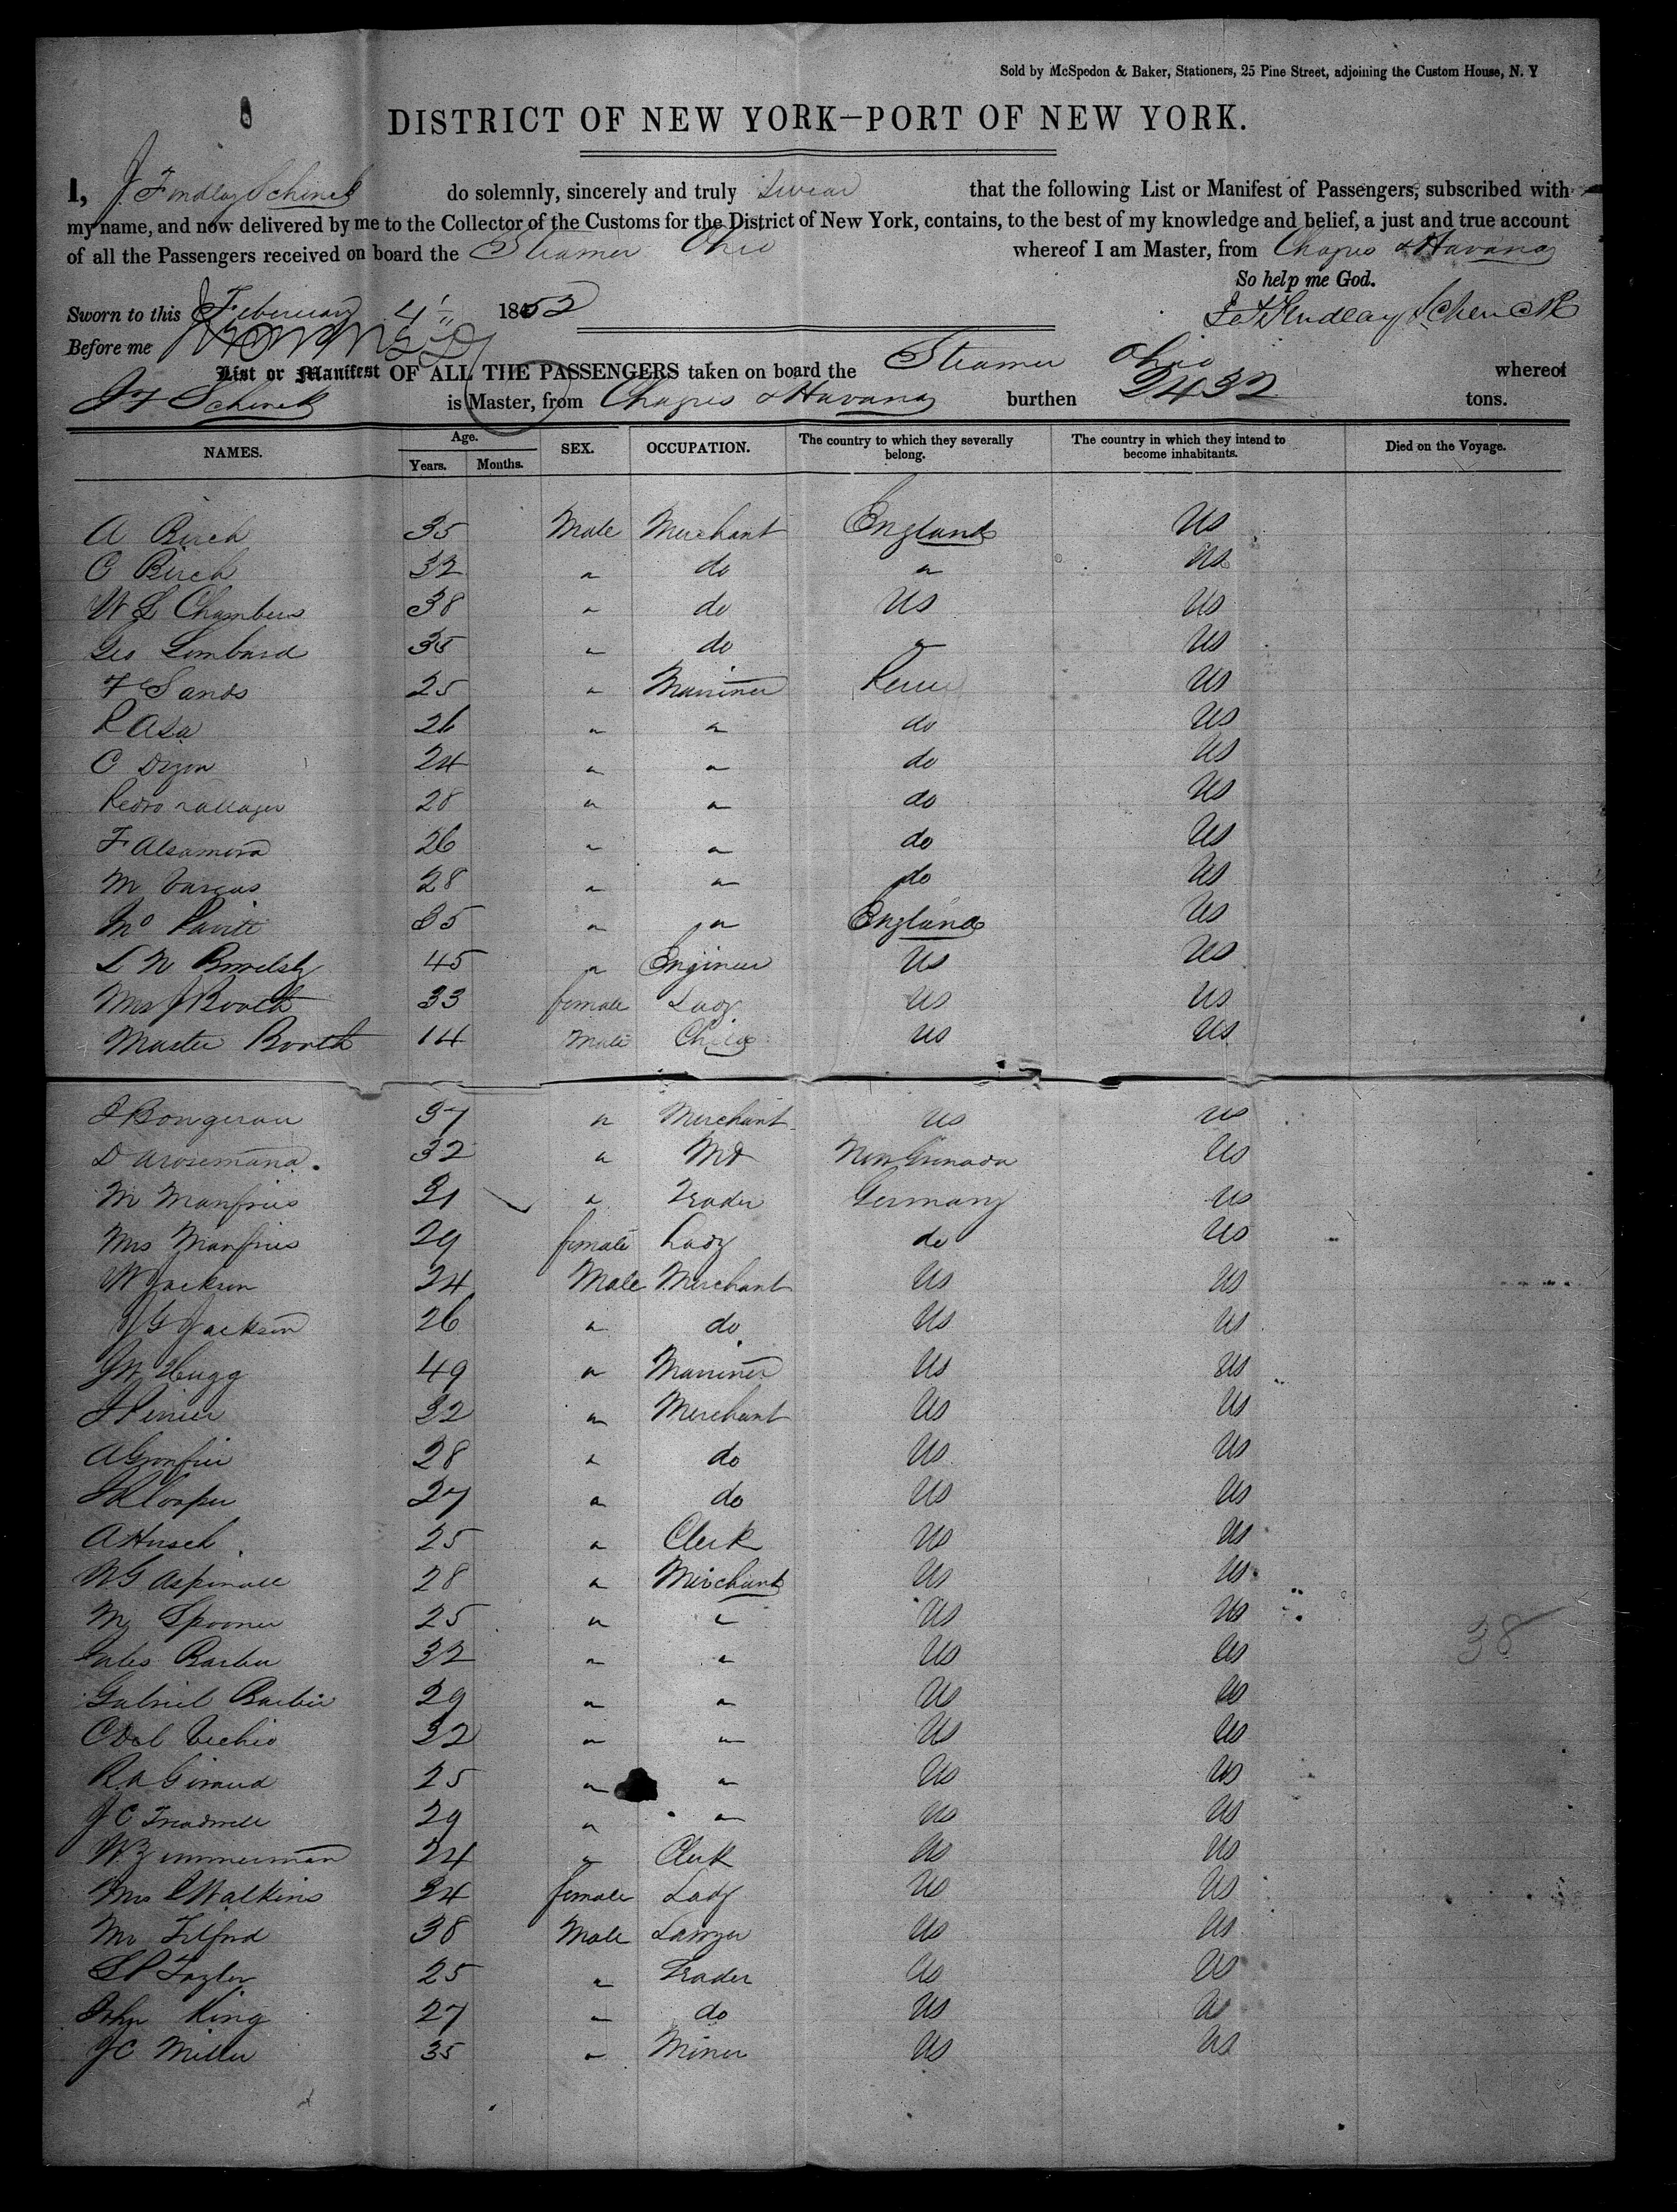 Sold by McSpedon & Baker, Stationers, 25 Pine Street, adjoining the Custom House, N. Y
DISTRICT OF NEW YORK—PORT OF NEW YORK.
I, J Findlay Schenck do solemnly, sincerely and truly swear that the following List or Manifest of Passengers, subscribed with
my name, and now delivered by me to the Collector of the Customs for the District of New York, contains, to the best of my knowledge and belief, a just and true account
of all the Passengers received on board the Steamer Ohio whereof I am Master, from Chagres & Havana
So help me God.
Sworn to this February 4 1852 Jas Findlay Schenck
Before me
List or Manifest OF ALL THE PASSENGERS taken on board the Steamer Ohio whereof
J F Schenck is Master, from Chagres & Havana burthen 2432 tons.
NAMES. Age. Years. Months. SEX. OCCUPATION. The country to which they severally belong. The country in which they intend to become inhabitants. Died on the Voyage.
A Birch 35 Male Merchant England US
C Birch 32 " do " US
W L Chambers 38 " do US US
Geo Lombard 35 " do " US
F Sands 25 " Mariner Peru US
R Asa 26 " " do US
C Dezon 24 " " do US
Pedro 28 " " do US
F Alsamora 26 " " do US
M Vargas 28 " " do US
35 " " England US
L N 45 " Engineer US US
Mrs J Booth 33 female Lady US US
Master Booth 14 Male Child US US
J Bongerau 37 " Merchant US US
D Arosemana 32 " MD New Grenada US
M Manfries 31 " Trader Germany US
Mrs Manfries 29 female Lady do US
W Jackson 24 Male Merchant US US
J G Jackson 26 " do US US
J W Hugg 49 " Mariner US US
32 " Merchant US US
28 " do US US
J R Cooper 27 " do US US
A Husch 25 " Clerk US US
W G Aspinall 28 " Merchant US US
Mr Spooner 25 " " US US
Jules Barbier 32 " " US US 38
Gabriel Barbier 29 " " US US
C Del Vechio 32 " " US US
R A Giraud 25 " " US US
J C Treadwell 29 " " US US
W Zimmerman 24 " Clerk US US
Mrs Walkins 34 female Lady US US
Mr Tilford 38 Male Lawyer US US
S P Taylor 25 " Trader US US
John King 27 " do US US
J C Miller 35 " Miner US US